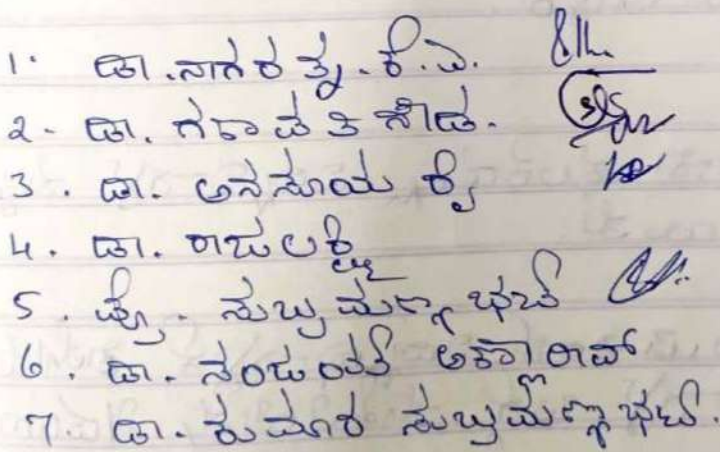 1. ಡಾ. ನಾಗರತ್ನ. ಕೆ.ಎ.
2. ಡಾ. ಗಣಪತಿ ಗೌಡ.
3. ಡಾ. ಅನಸೂಯ ರೈ
4. ಡಾ. ರಾಜಲಕ್ಷ್ಮಿ
5. ಪ್ರೊ. ಸುಬ್ರಮಣ್ಯ ಭಟ್
6. ಡಾ. ಸಂಜಯ್
7. ಡಾ. ಕುಮಾರ ಸುಬ್ರಮಣ್ಯ ಭಟ್.